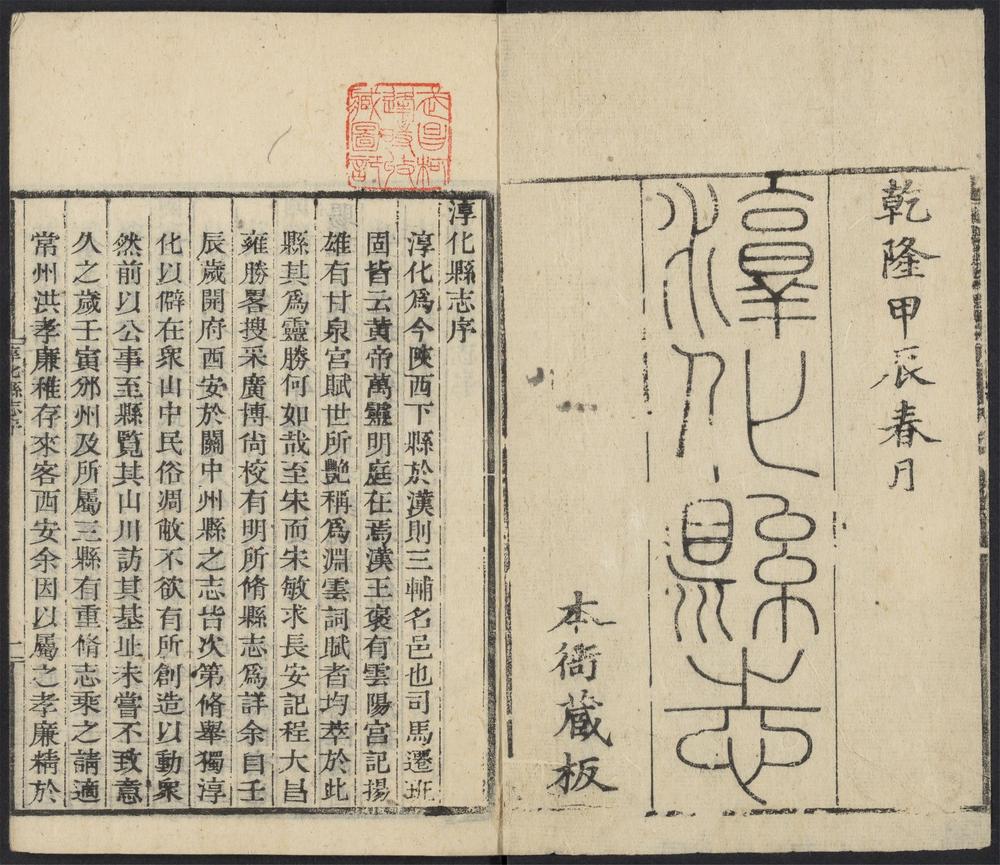 乾隆甲辰春月
淳化縣志
本衙藏板
武昌柯
逢時收
藏圖記
淳化縣志序
淳化爲今陝西下縣於漢則三輔名邑也司馬遷班
固皆云黃帝萬靈明庭在焉漢王褒有雲陽宮記揚
雄有甘泉宮賦世所艷稱爲淵雲詞賦者均萃於此
縣其爲靈勝何如哉至宋而宋敏求長安記程大昌
雍勝畧搜采廣博尙校有明所脩縣志爲詳余自壬
辰歲開府西安於關中州縣之志皆次第脩舉獨淳
化以僻在衆山中民俗凋敝不欲有所創造以動衆
然前以公事至縣覽其山川訪其基址未嘗不致意
久之歲壬寅邠州及所屬三縣有重脩志乘之請適
常州洪孝廉稚存來客西安余因以屬之孝廉精於
淳化縣志序
一